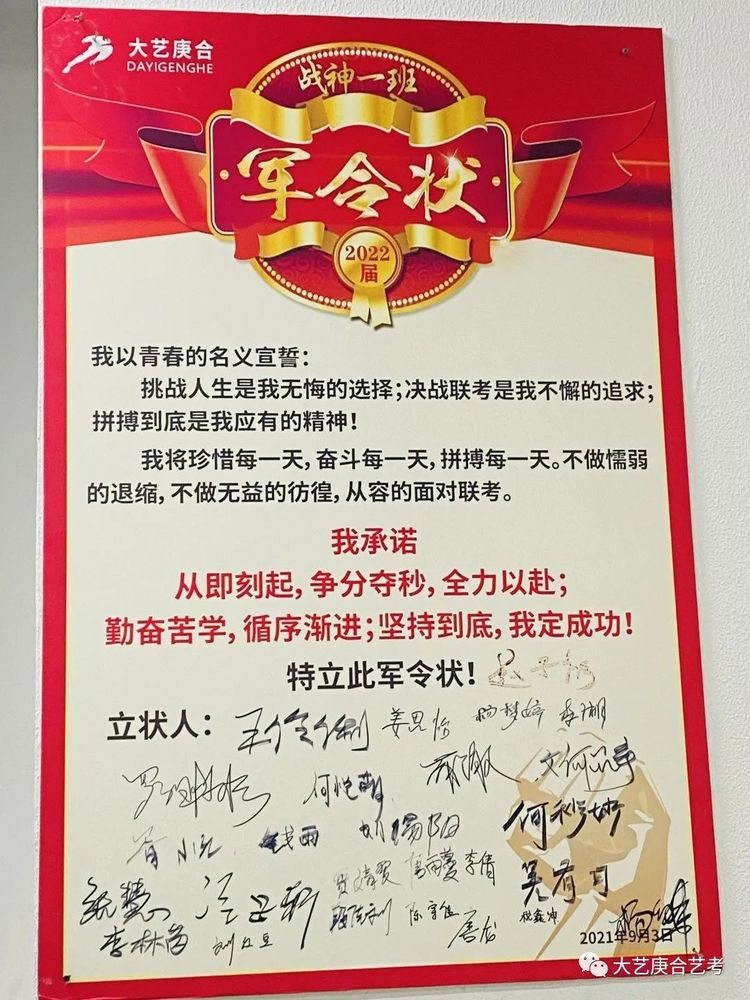 大艺庚合
DAYIGENGHE
战神一班
军令状
2022
届
我以青春的名义宣誓：
挑战人生是我无悔的选择；决战联考是我不懈的追求；
拼搏到底是我应有的精神！
我将珍惜每一天，奋斗每一天，拼搏每一天。不做懦弱
的退缩，不做无益的彷徨，从容的面对联考。
我承诺
从即刻起，争分夺秒，全力以赴；
勤奋苦学，循序渐进；坚持到底，我定成功！
特立此军令状！
立状人： 姜思怡 杨梦婷
钱雨 刘扬阳 何秋妍
李倩
吴有可
李林芮 刘红豆 唐龙
2021年9月3日
大艺庚合艺考